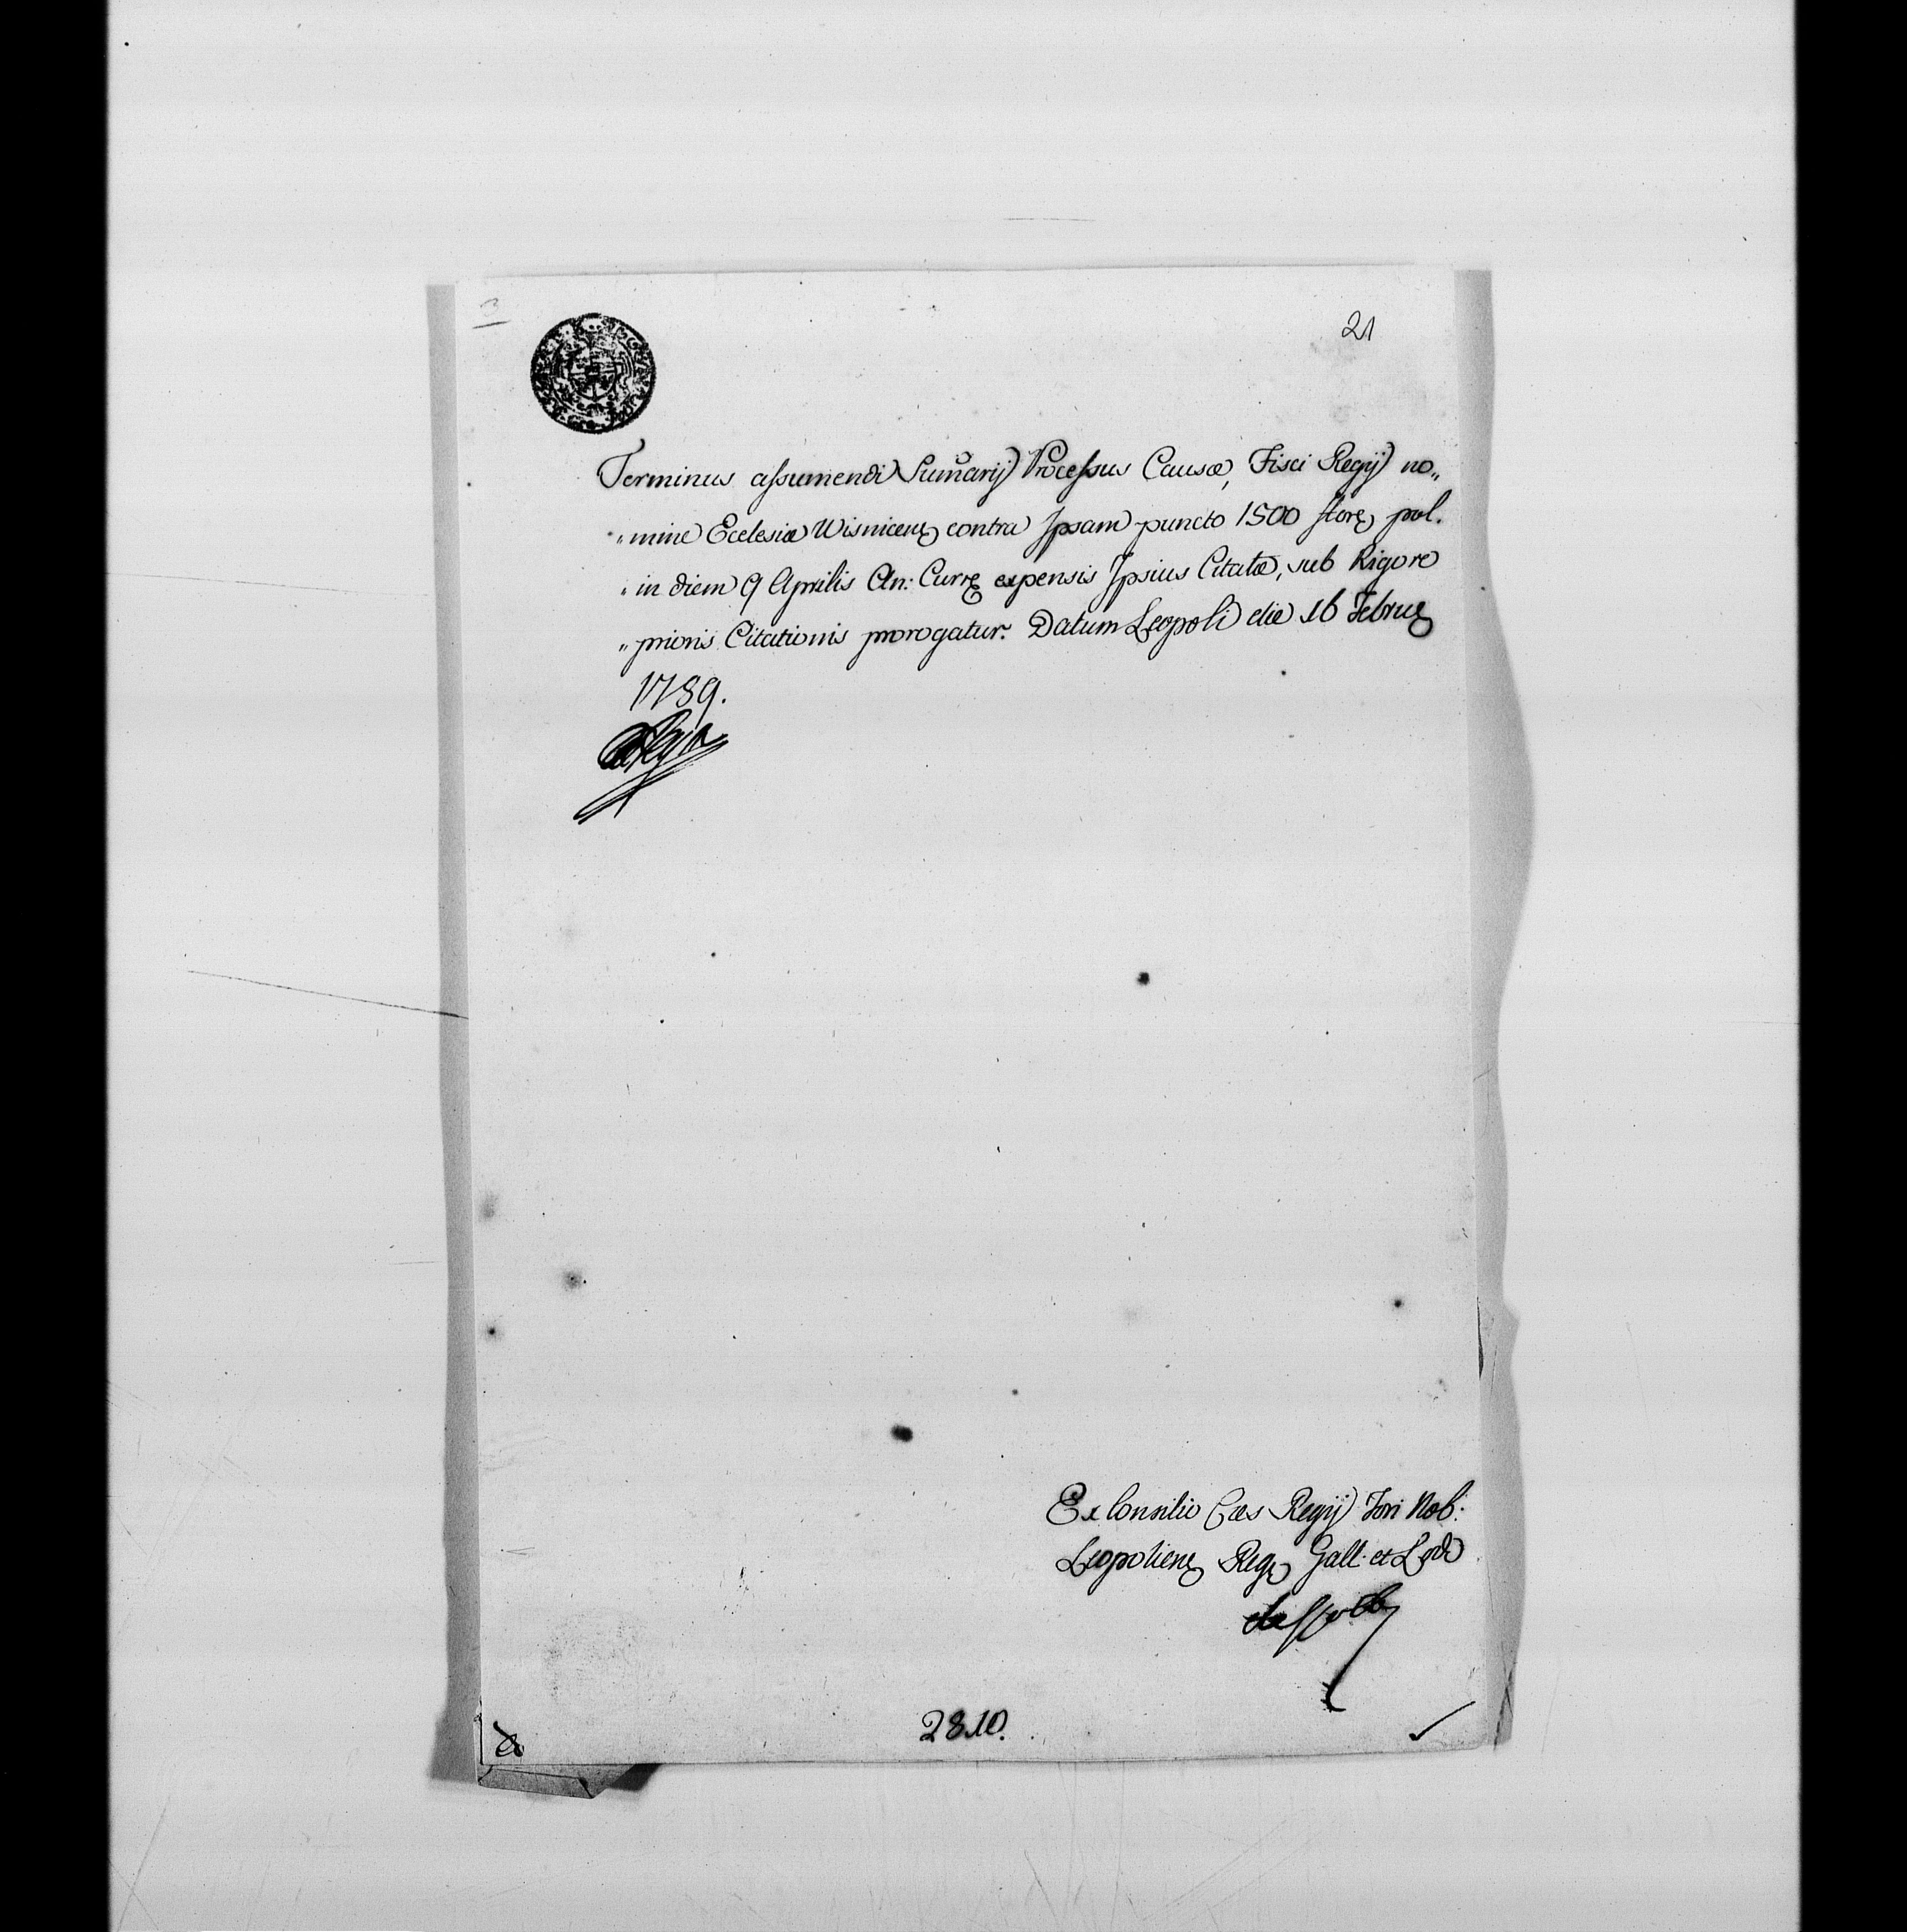 21
Terminus assumendi Sum̃arij Processus Causæ, Fisci Regij no„
„mine Ecclesiæ Wisnicenȩ contra Ipsam puncto 1500 florȩ pol.
„in diem 9 Aprilis An: Currȩ expensis Ipsius Citatæ, sub Rigore
„prioris Citationis prorogatur. Datum Leopoli die 16 Februȩ
1789.
Ex Consilio Cæs Regij Fori Nob:
Leopolienȩ Regȩ Gall: et Lod
2810.